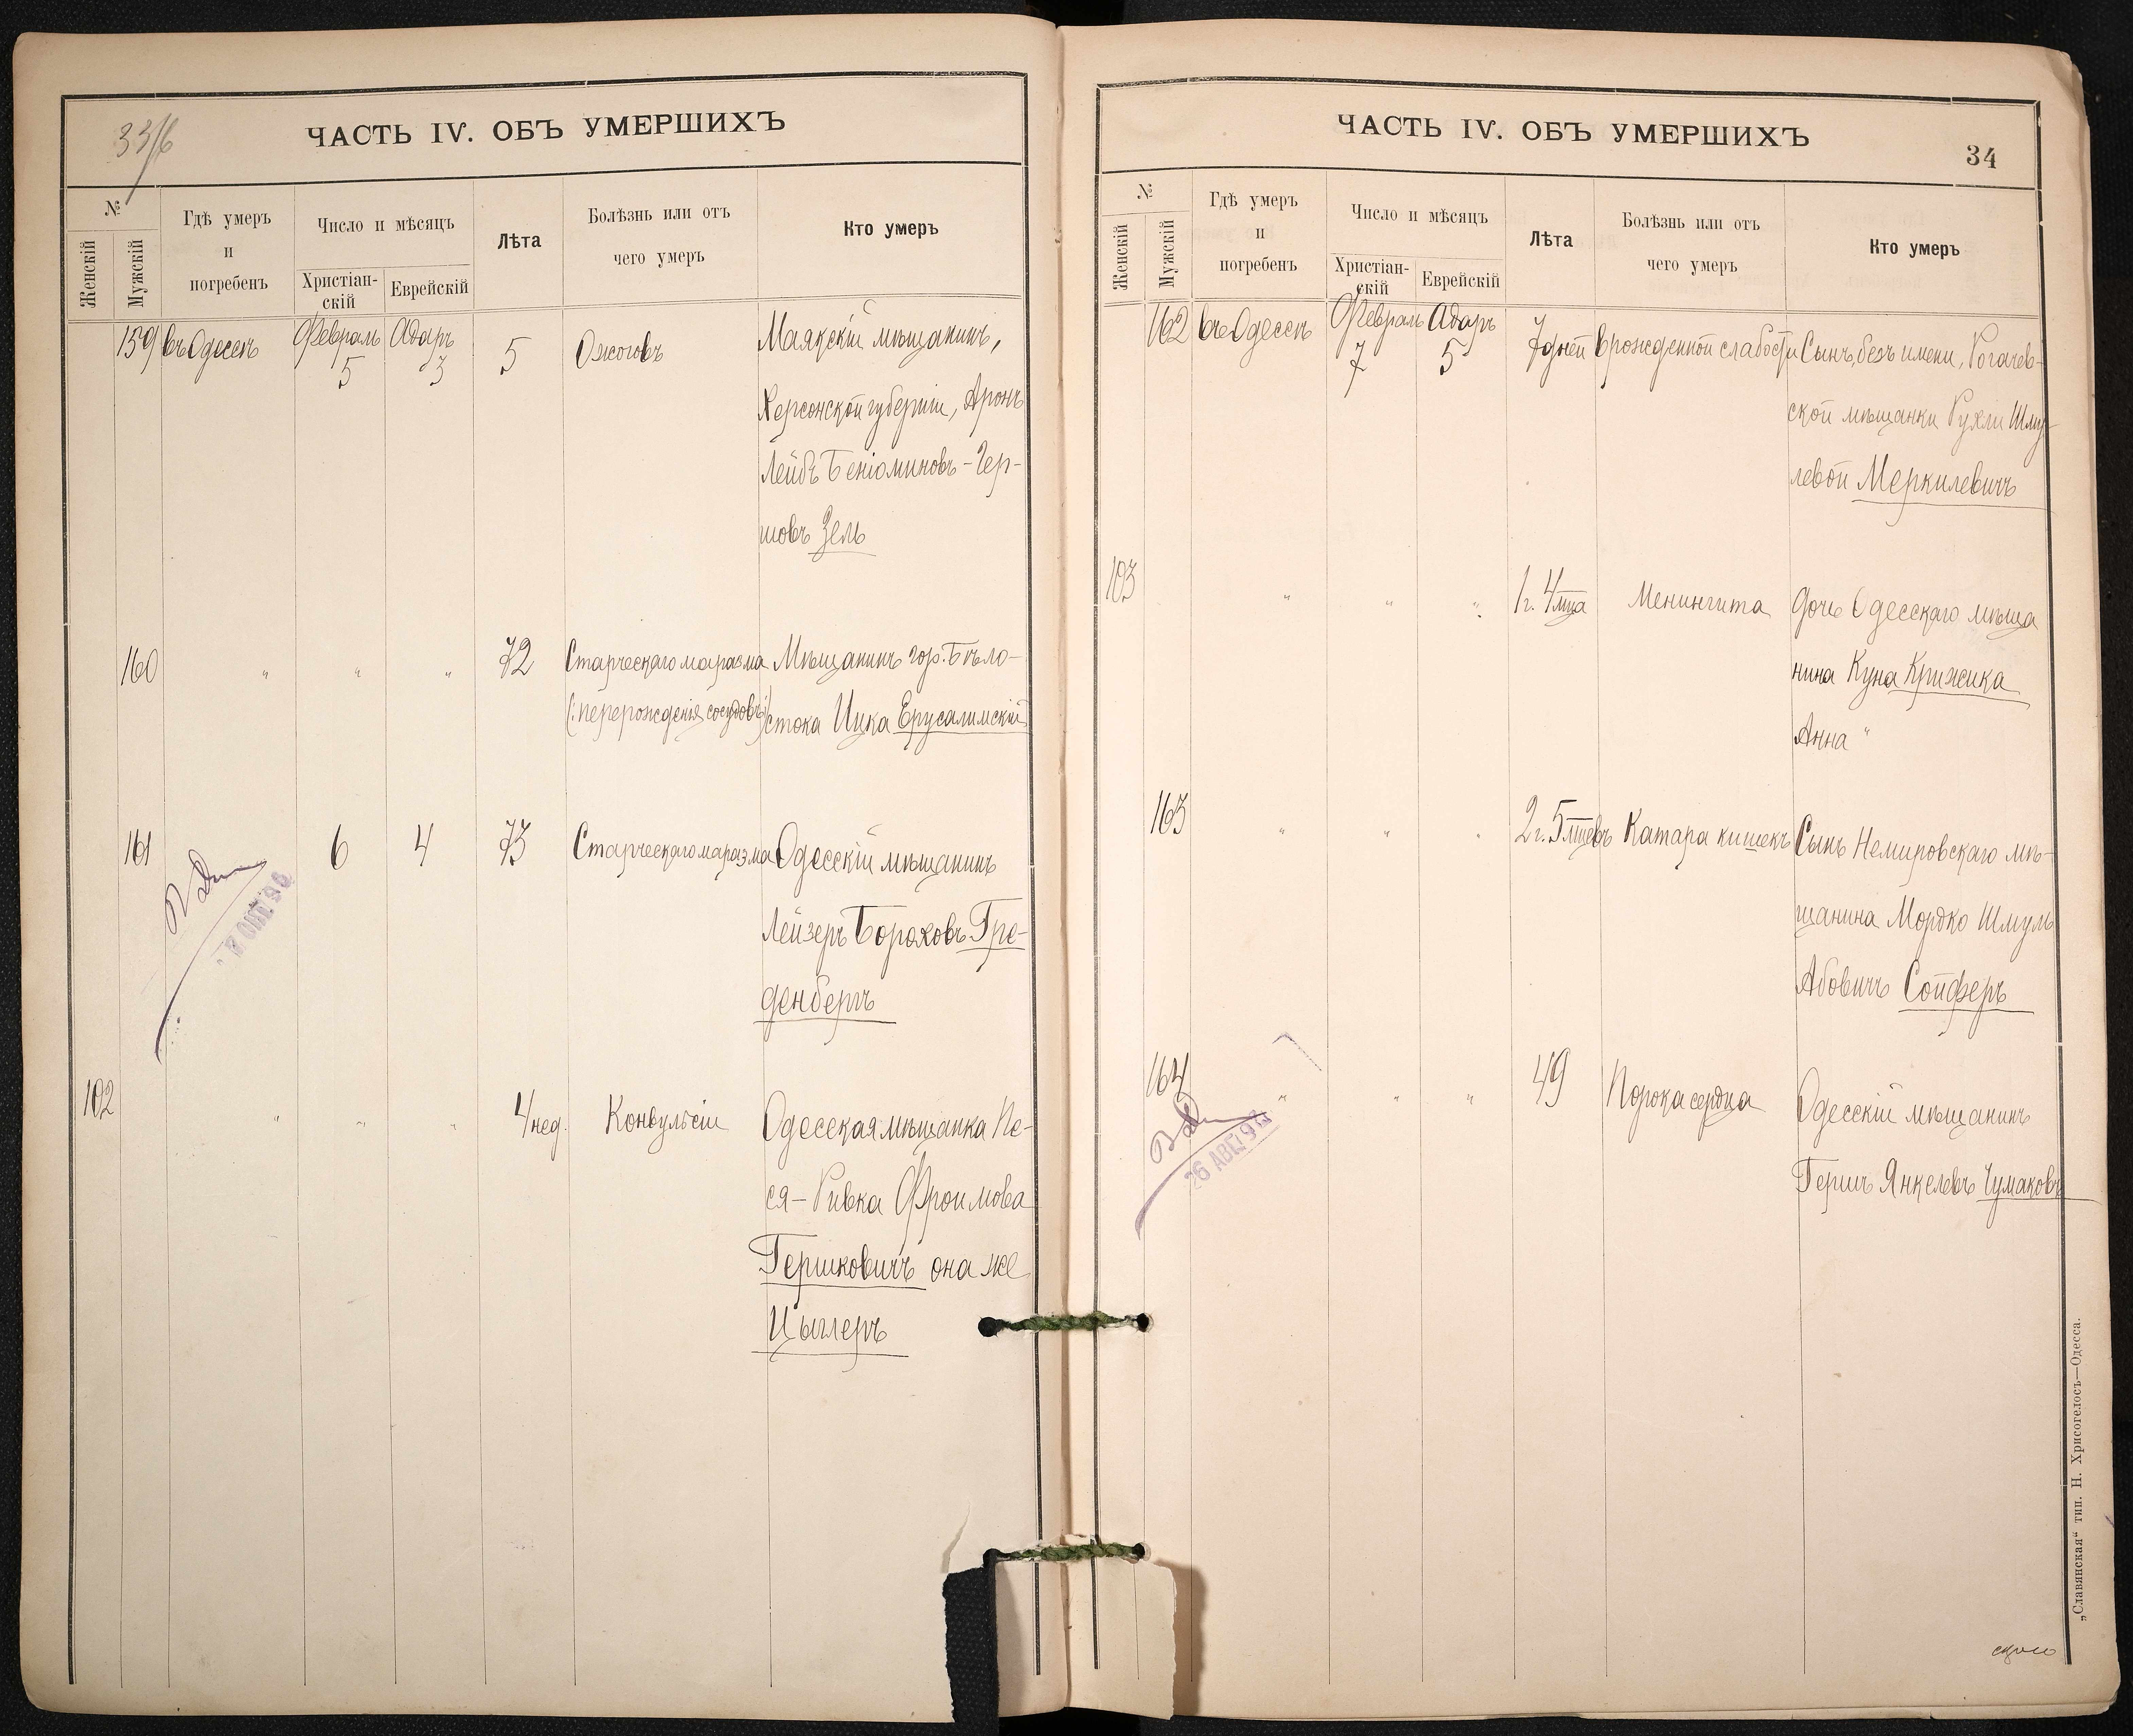 33/б
ЧАСТЬ IV. ОБЪ УМЕРШИХЪ
№
Женскій
Мужскій
Гдѣ умеръ
и
погребенъ
Число и мѣсяцъ
Христіан-
скій
Еврейскій
Лѣта
Болѣзнь или отъ
чего умеръ
Кто умеръ
159 въ Одессѣ Февраль 5 Адаръ 3 5 Ожоговъ Маякскій мѣщанинъ,
Херсонской губерніи, Аронъ
Лейбъ Беніоминовъ-Гер-
шовъ Зель
160 " " " 72 Старческаго маразма Мѣщанинъ гор. Бѣло-
(:перерожденія сосудовъ:) стока Ицка Ерусалимскій
161 6 4 73 Старческаго маразма Одесскій мѣщанинъ
Лейзеръ Бороховъ Гре-
денбергъ
102 " " " 4 нед. Конвульсіи Одесская мѣщанка Пе-
ся-Ривка Фроимова
Гершковичъ она же
Цыглеръ
ЧАСТЬ IV. ОБЪ УМЕРШИХЪ
34
№
Женскій
Мужскій
Гдѣ умеръ
и
погребенъ
Число и мѣсяцъ
Христіан-
скій
Еврейскій
Лѣта
Болѣзнь или отъ
чего умеръ
Кто умеръ
162 въ Одессѣ Февраль 7 Адаръ 5 7 дней Врожденной слабости Сынъ, безъ имени, Рогачев-
ской мѣщанки Рухли Шму-
левой Меркилевичъ
103 " " " 1 г. 4 мца Менингита Дочь Одесскаго мѣща
нина Куна Крижика
Анна "
163 " " " 2 г. 5 мцевъ Катара кишекъ Сынъ Немировскаго мѣ-
щанина Мордко Шмуль
Абовичъ Сойферъ
164 " " " 49 Порока сердца Одесскій мѣщанинъ
26 АВГ 19
Гершъ Янкелевъ Чумаковъ
„Славянская“ тип. Н. Хрисогелосъ—Одесса.